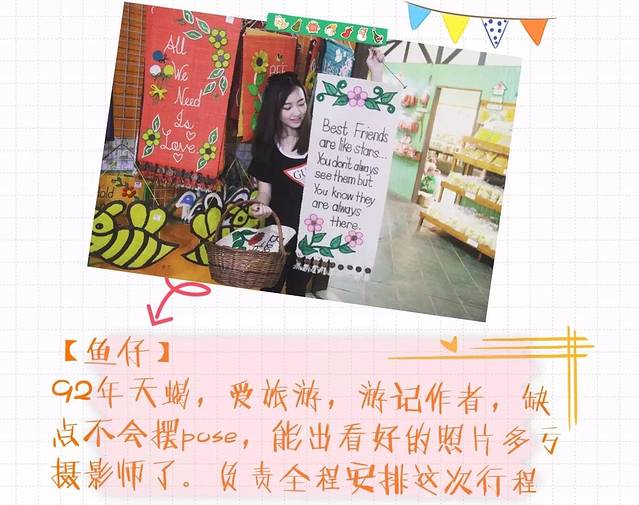 All
We
Need
Is
Love
BEE
Best Friends
are like stars...
You don't always
see them but
You know they
are always
there.
GU
old
【鱼仔】
92年天蝎，爱旅游，游记作者，缺
点不会摆pose，能出看好的照片多亏
摄影师了。负责全程安排这次行程